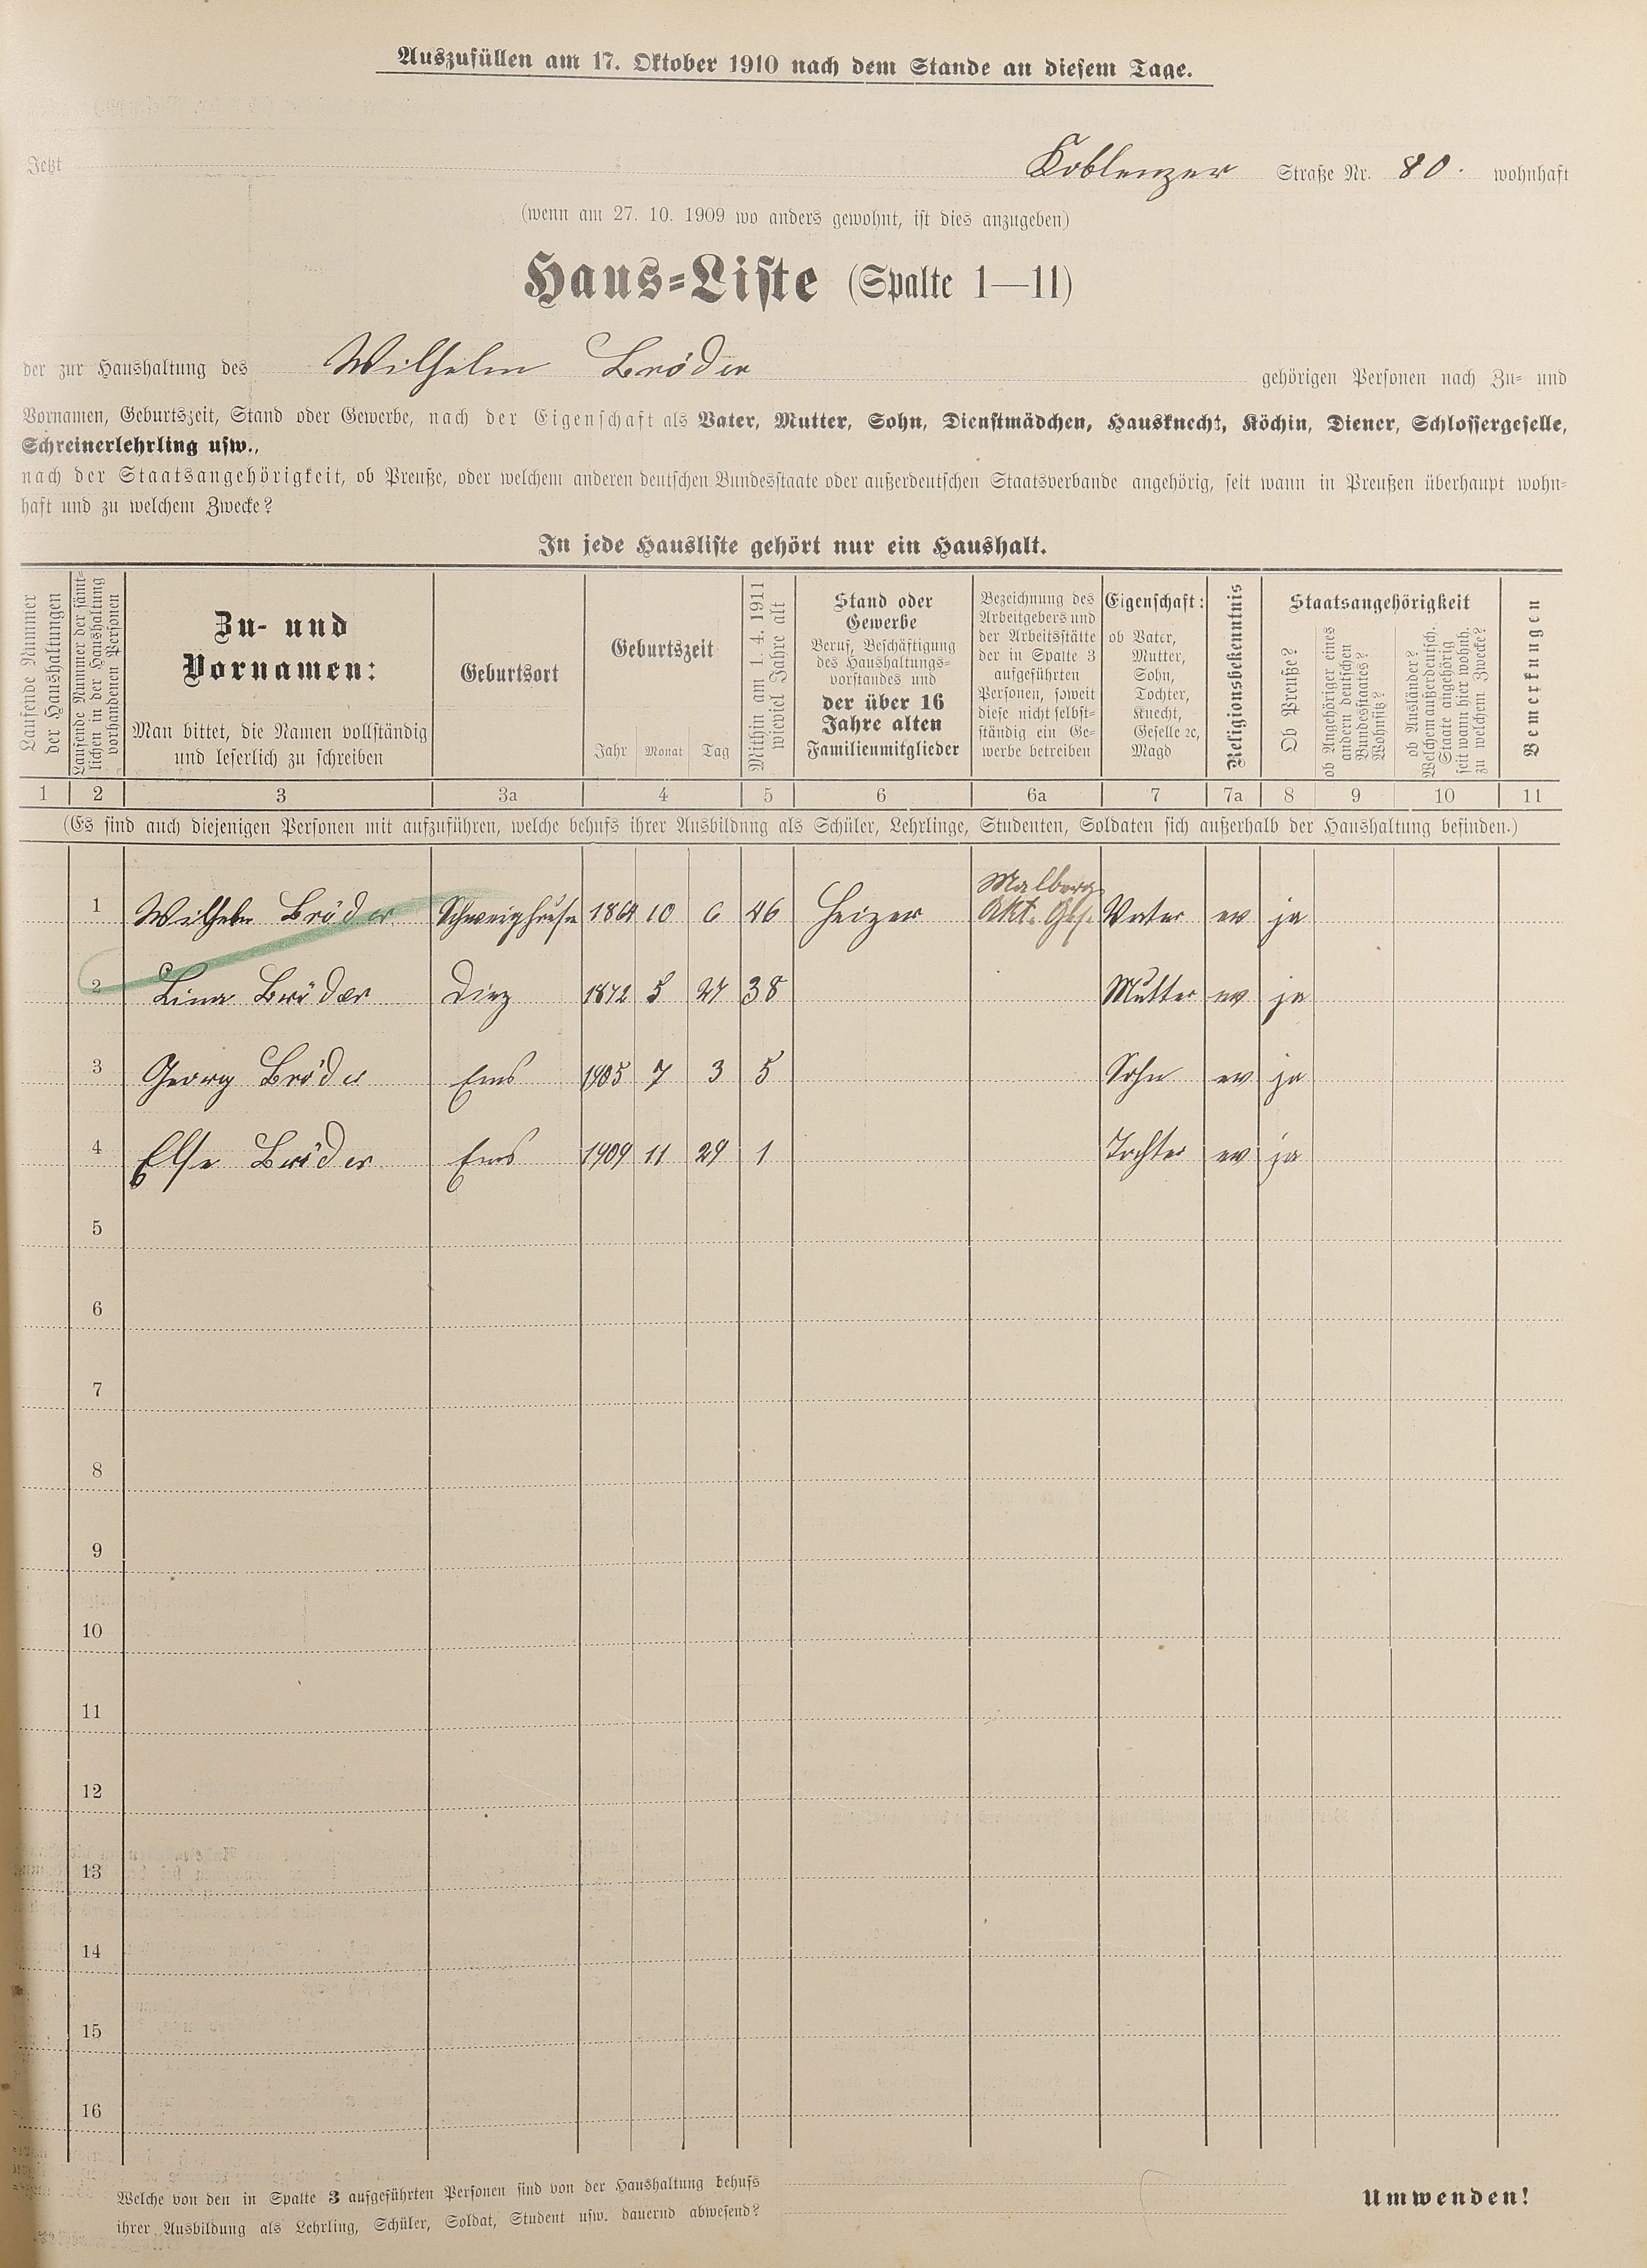 Auszufüllen am 17. Oktober 1910 nach dem Stande an diesem Tage.
Jetzt Koblenzer Straße Nr. 80. wohnhaft
(wenn am 27. 10. 1909 wo anders gewohnt, ist dies anzugeben)
Haus=Liste (Spalte 1—11)
der zur Haushaltung des Wilhelm Bröder gehörigen Personen nach Zu= und
Vornamen, Geburtszeit, Stand oder Gewerbe, nach der Eigenschaft als Vater, Mutter, Sohn, Dienstmädchen, Hausknecht, Köchin, Diener, Schlossergeselle,
Schreinerlehrling usw.,
nach der Staatsangehörigkeit, ob Preuße, oder welchem anderen deutschen Bundesstaate oder außerdeutschen Staatsverbande angehörig, seit wann in Preußen überhaupt wohn=
haft und zu welchem Zwecke?
In jede Hausliste gehört nur ein Haushalt.
Laufende Nummer
der Haushaltungen
Laufende Nummer der sämt=
lichen in der Haushaltung
vorhandenen Personen
Zu- und
Vornamen:
Man bittet, die Namen vollständig
und leserlich zu schreiben
Geburtsort
Geburtszeit
Jahr Monat Tag
Mithin am 1. 4. 1911
wieviel Jahre alt
Stand oder
Gewerbe
Beruf, Beschäftigung
des Haushaltungs=
vorstandes und
der über 16
Jahre alten
Familienmitglieder
Bezeichnung des
Arbeitgebers und
der Arbeitsstätte
der in Spalte 3
aufgeführten
Personen, soweit
diese nicht selbst=
ständig ein Ge=
werbe betreiben
Eigenschaft:
ob Vater,
Mutter,
Sohn,
Tochter,
Knecht,
Geselle ꝛc,
Magd
Religionsbekenntnis
Staatsangehörigkeit
Ob Preuße?
ob Angehöriger eines
andern deutschen
Bundesstaates?
Wohnsitz?
ob Ausländer?
Welchem außerdeutsch.
Staate angehörig
seit wann hier wohnh.
zu welchem Zwecke?
Bemerkungen
1 2 3 3a 4 5 6 6a 7 7a 8 9 10 11
(Es sind auch diejenigen Personen mit aufzuführen, welche behufs ihrer Ausbildung als Schüler, Lehrlinge, Studenten, Soldaten sich außerhalb der Haushaltung befinden.)
Malberg
1 Wilhelm Bröder Schweighausen 1864 10 6 46 Heizer Akt. Ges. Vater ev ja
2 Lina Bröder Diez 1872 5 27 38 Mutter ev ja
3 Georg Bröder Ems 1905 7 3 5 Sohn ev ja
4 Else Bröder Ems 1909 11 29 1 Tochter ev ja
5
6
7
8
9
10
11
12
13
14
15
16
Welche von den in Spalte 3 aufgeführten Personen sind von der Haushaltung behufs
ihrer Ausbildung als Lehrling, Schüler, Soldat, Student usw. dauernd abwesend?
Umwenden!